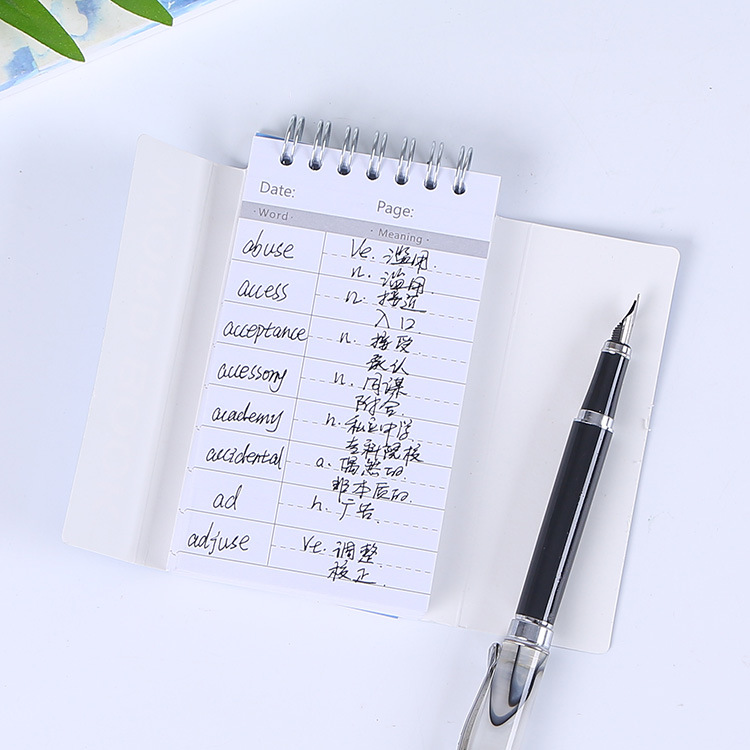 Date: Page:
· Word · · Meaning ·
abuse Ve. 滥用.
n. 滥用.
access n. 接近
入口
acceptance n. 接受
承认
accessory n. 同谋
附合.
academy n. 私立中学
专科院校
accidental a. 偶然的
非本质的.
ad n. 广告.
adjuse Ve. 调整
校正.